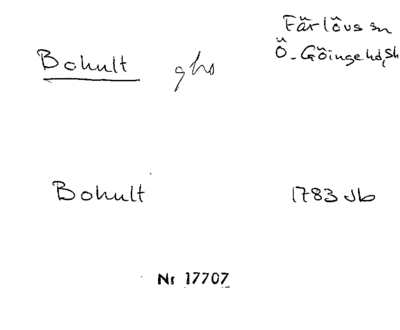 Färlövs sn
Bohult ghs Ö. Göinge hd, Sk
Bohult 1783 Jb
Nr 17707